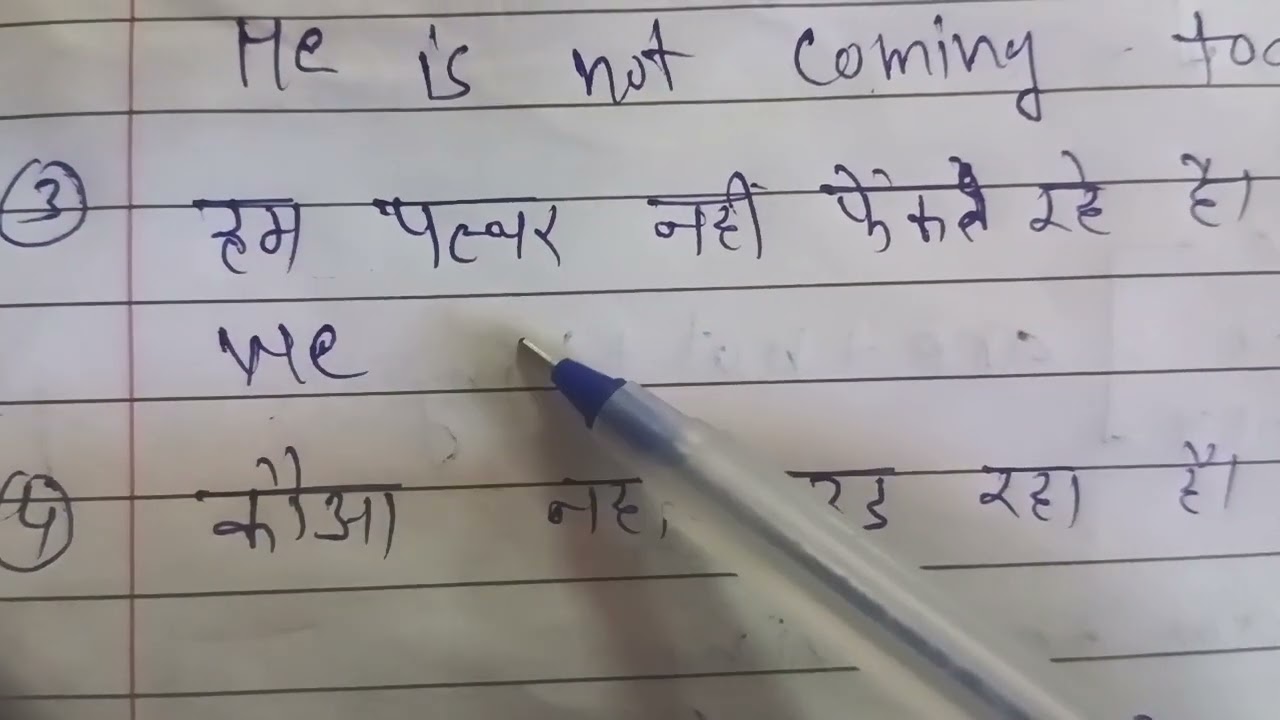 He is not coming too
③ हम पत्थर नहीं फेंक रहे हैं।
We
④ कौआ नहीं उड़ रहा है।